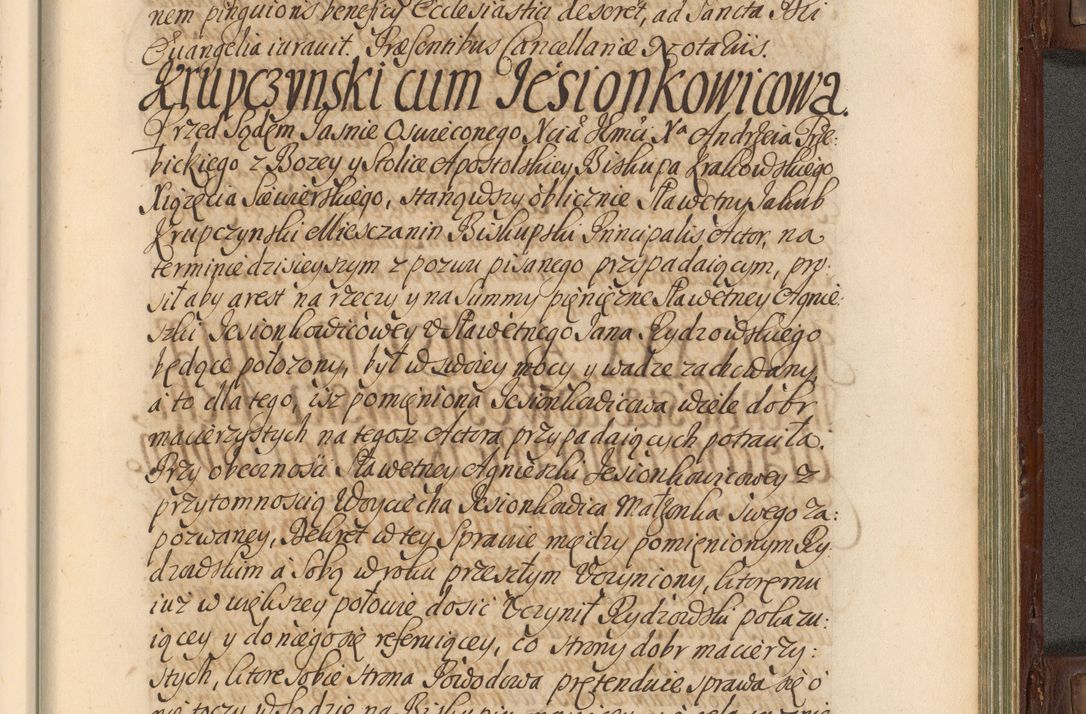 nem pinguioris beneficy Ecclesiastici deseret, ad Sancta Dei
Euangelia iurauit. Præsentibus Cancellariæ Notariis.
Krupczynski cum Jesionkowicowa.
Przed Sądem Jasnie Oswieconego Xcia Jmci Xa Andrzeia Trze-
bickiego z Bozey y Stolice Apostolskiey Biskupa Krakowskiego
Xiązęcia Siewierskiego, stanąwszy oblicznie Sławetny Jakub
Krupczynski Miesczanin Biskupski Principalis Actor, na
terminie dzisieyszym z pozwu pisanego przypadaiącym, pro-
sił aby arest na rzeczy y na Summy pięnięzne Sławetney Agnie-
szki Jesionkowicowey v Sławetnego Jana Rydzowskiego
będące połozony, był w swoiey mocy y wadze zachowany,
a to dla tego, isz pomięniona Jesionkowicowa wiele dobr
macierzystych na tegosz Actora przypadaiących potraciła.
Przy obecnosci Sławetney Agnieszki Jesionkowicowey z
przytomnoscią Woyciecha Jesionkowica Małzonka swego za:
pozwaney, Dekret w tey Sprawie między pomięnionym Ry-
dzowskim a Sobą w roku przeszłym Vczyniony, ktoremu
iuz w większey połowie dosic Vczynił Rydzowski pokazu:
iącey y do niego się referuiącey, co strony dobr macierzy:
stych, ktore sobie strona Powodowa prętenduie sprawa się o
nie toczy w Sądzie